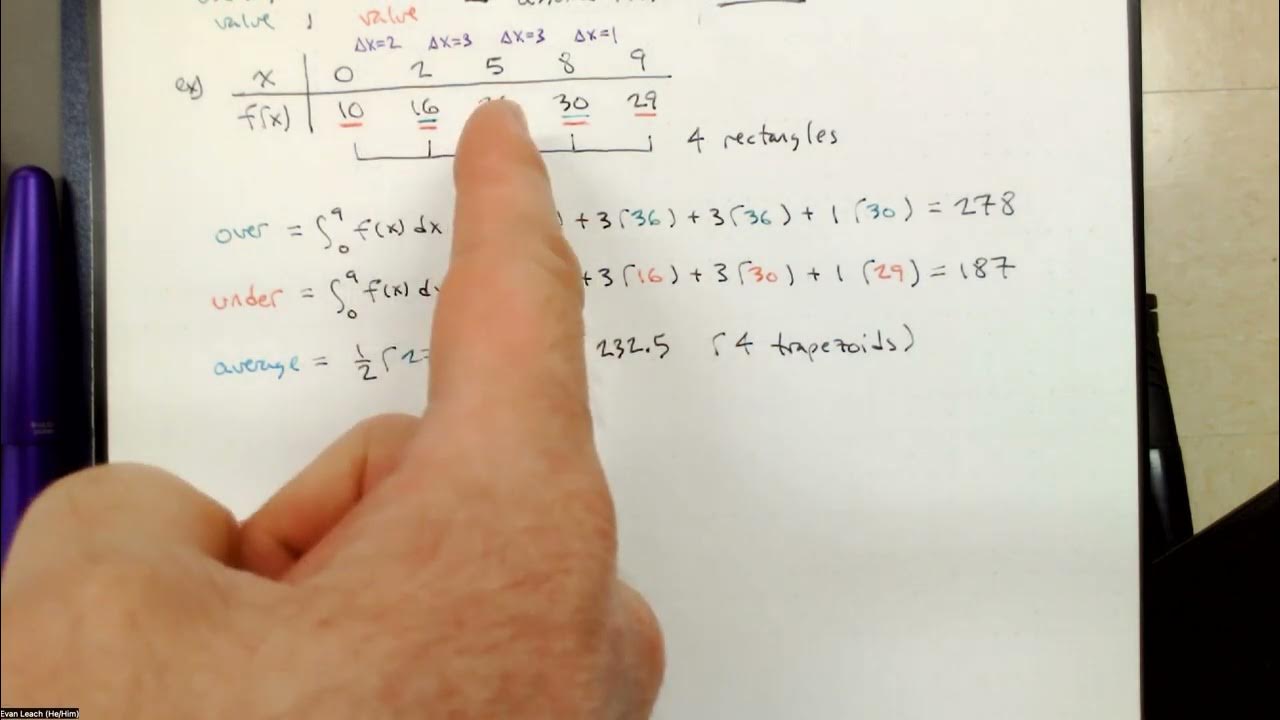 value , value
Δx=2 Δx=3 Δx=3 Δx=1
ex) x 0 2 5 8 9
f(x) 10 16 30 29
4 rectangles
over = ∫₀⁹ f(x) dx + 3(36) + 3(36) + 1(30) = 278
under = ∫₀⁹ f(x) d + 3(16) + 3(30) + 1(29) = 187
average = 1/2 (2 232.5 (4 trapezoids)
Evan Leach (He/Him)